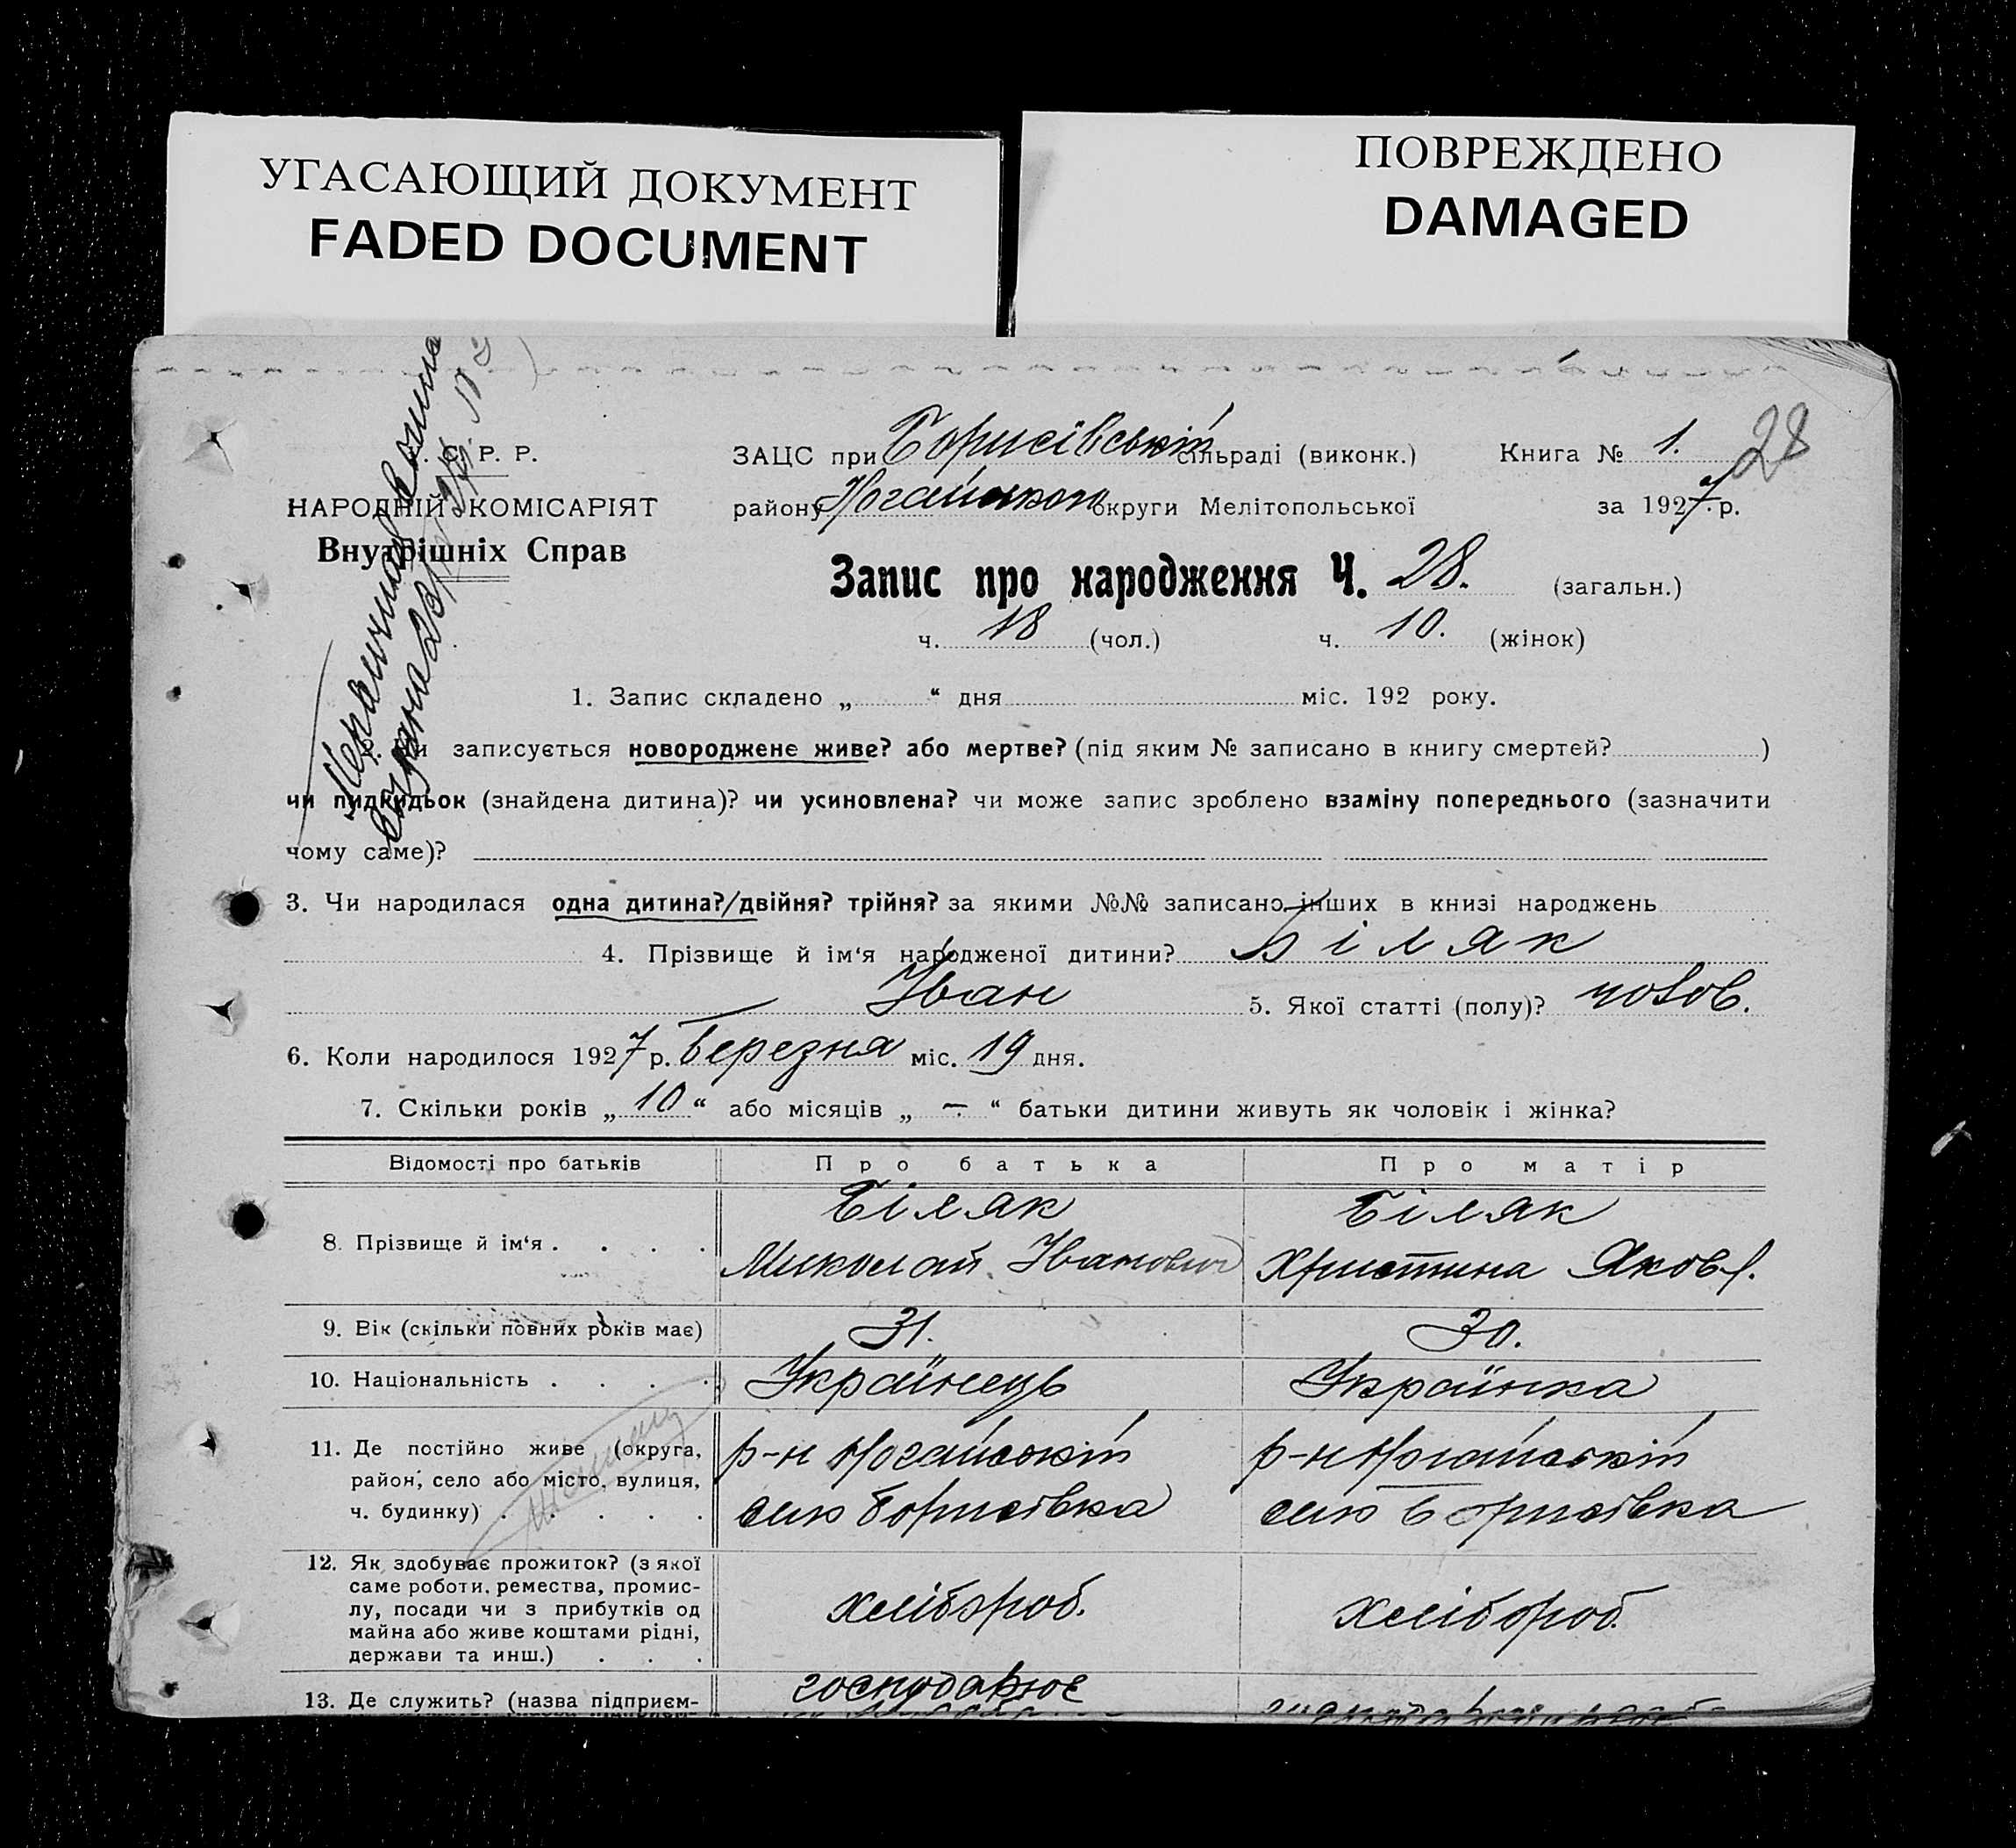 УГАСАЮЩИЙ ДОКУМЕНТ
FADED DOCUMENT
ПОВРЕЖДЕНО
DAMAGED
С. Р. Р.
НАРОДНІЙ КОМІСАРІЯТ
Внутрішніх Справ
ЗАЦС при Борисівській сільраді (виконк.)
Книга № 1.
28
району Ногайського округи Мелітопольської
за 1927 р.
Запис про народження Ч. 28. (загальн.)
ч. 18 (чол.) ч. 10. (жінок)
1. Запис складено „ “ дня міс. 192 року.
записується новороджене живе? або мертве? (під яким № записано в книгу смертей? )
чи підкидьок (знайдена дитина)? чи усиновлена? чи може запис зроблено взаміну попереднього (зазначити
чому саме)?
3. Чи народилася одна дитина?/двійня? трійня? за якими №№ записано інших в книзі народжень
4. Прізвище й ім‘я народженої дитини? Біляк
Іван 5. Якої статті (полу)? чолов.
6. Коли народилося 1927 р. березня міс. 19 дня.
7. Скільки років „ 10 “ або місяців „ — “ батьки дитини живуть як чоловік і жінка?
Відомості про батьків Про батька Про матір
8. Прізвище й ім‘я . . . . Біляк Миколай Іванович Біляк Христина Яковл.
9. Вік (скільки повних років має) 31. 30.
10. Національність . . . . Українець Українка
11. Де постійно живе (округа, р-н Ногайський р-н Ногайський
район, село або місто, вулиця,
ч. будинку) . . . . . село Борисівка село Борисівка
12. Як здобуває прожиток? (з якої
саме роботи, ремества, промис-
лу, посади чи з прибутків од хлібороб. хлібороб.
майна або живе коштами рідні,
держави та инш.) . . .
13. Де служить? (назва підприєм- господарює